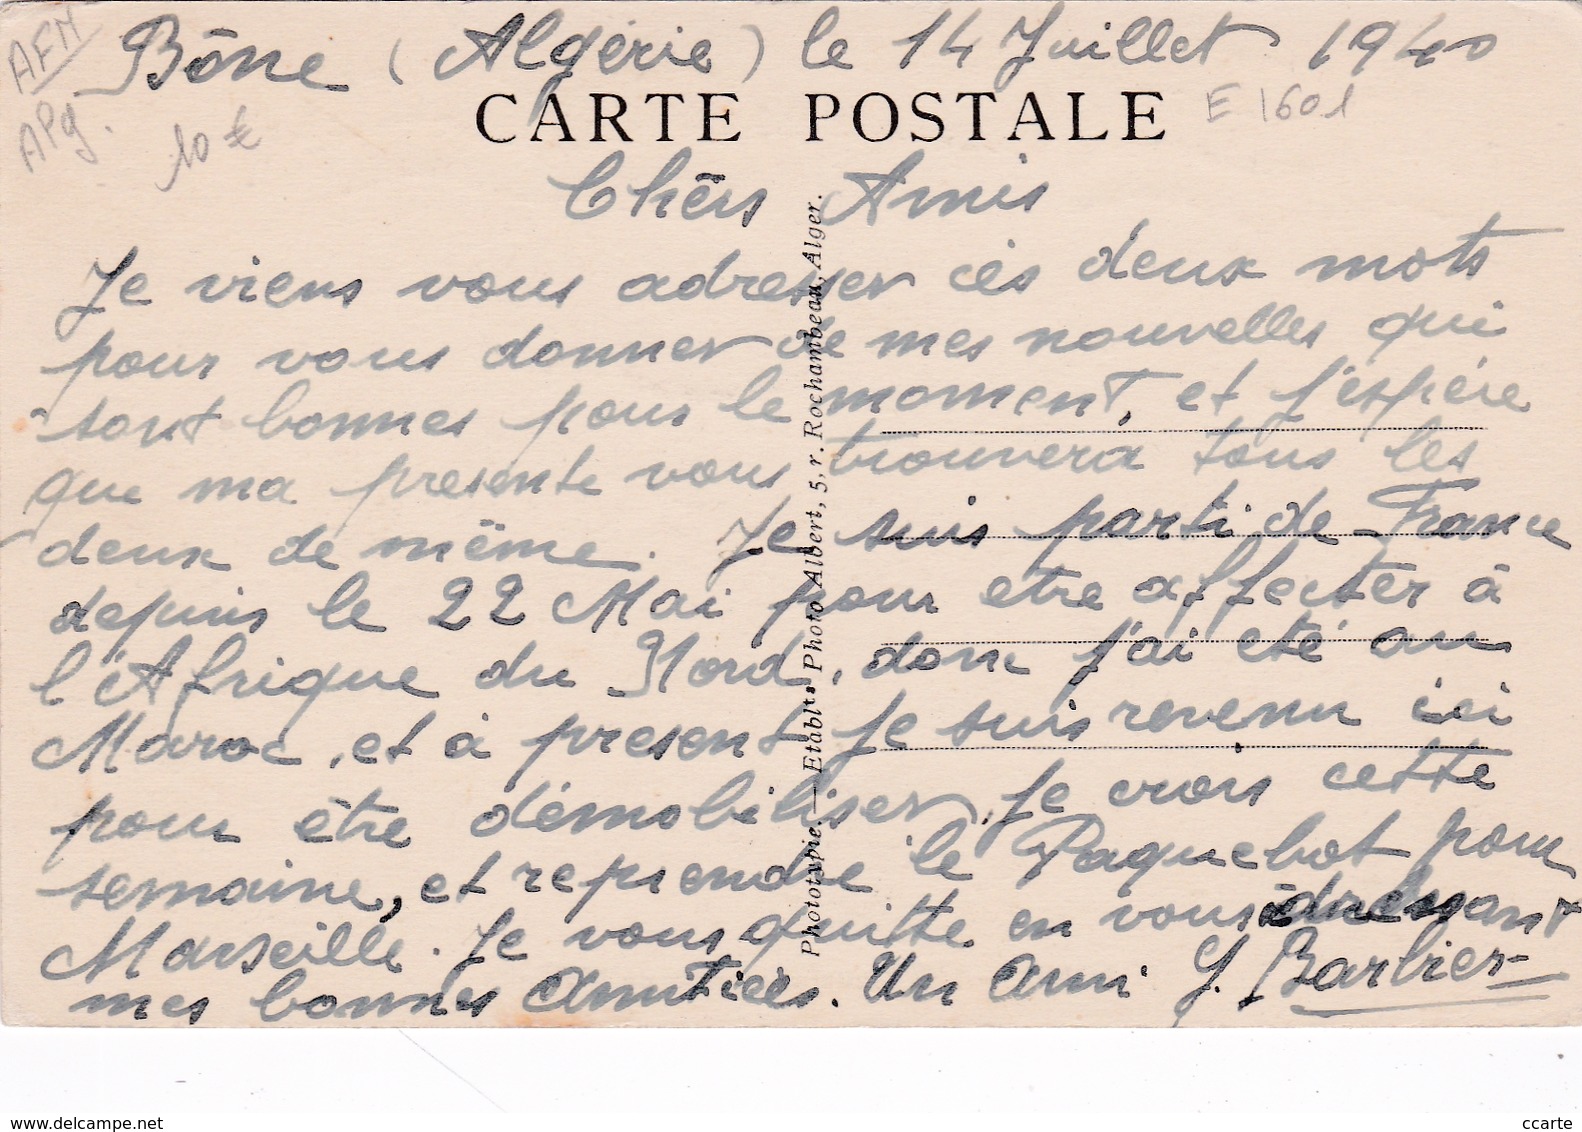 AFN
APg.
10 €
Bône (Algérie) le 14 Juillet 1940
CARTE POSTALE
E 1601
Chèrs Amis
Je viens vous adresser cès deux mots
pour vous donner de mes nouvelles qui
sont bonnes pour le moment, et j'espère
que ma presente vous trouvera tous les
deux de même. Je suis parti de France
depuis le 22 Mai pour etre affecter à
l'Afrique du Nord, donc j'ai eté au
Maroc, et à present je suis revenu ici
pour être démobiliser, je crois cette
semaine, et reprendre le Paquebot pour
Marseille. Je vous quitte en vous adressant
mes bonnes Amitiées. Un Ami J. Barbier
Phototypie. — Etablts Photo Albert, 5, r. Rochambeau, Alger.
www.delcampe.net
ccarte